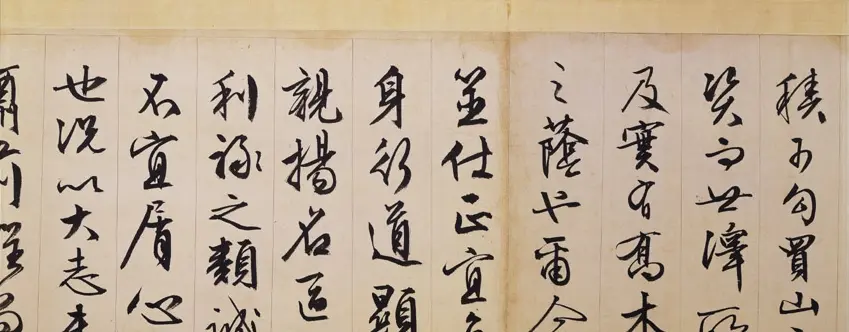 積可勾買山
資而世澤所
及實有喬木
之蔭也爾今
筮仕正宜立
身行道顯
親揚名區
利祿之類誠
不宜屑心
也況以大志